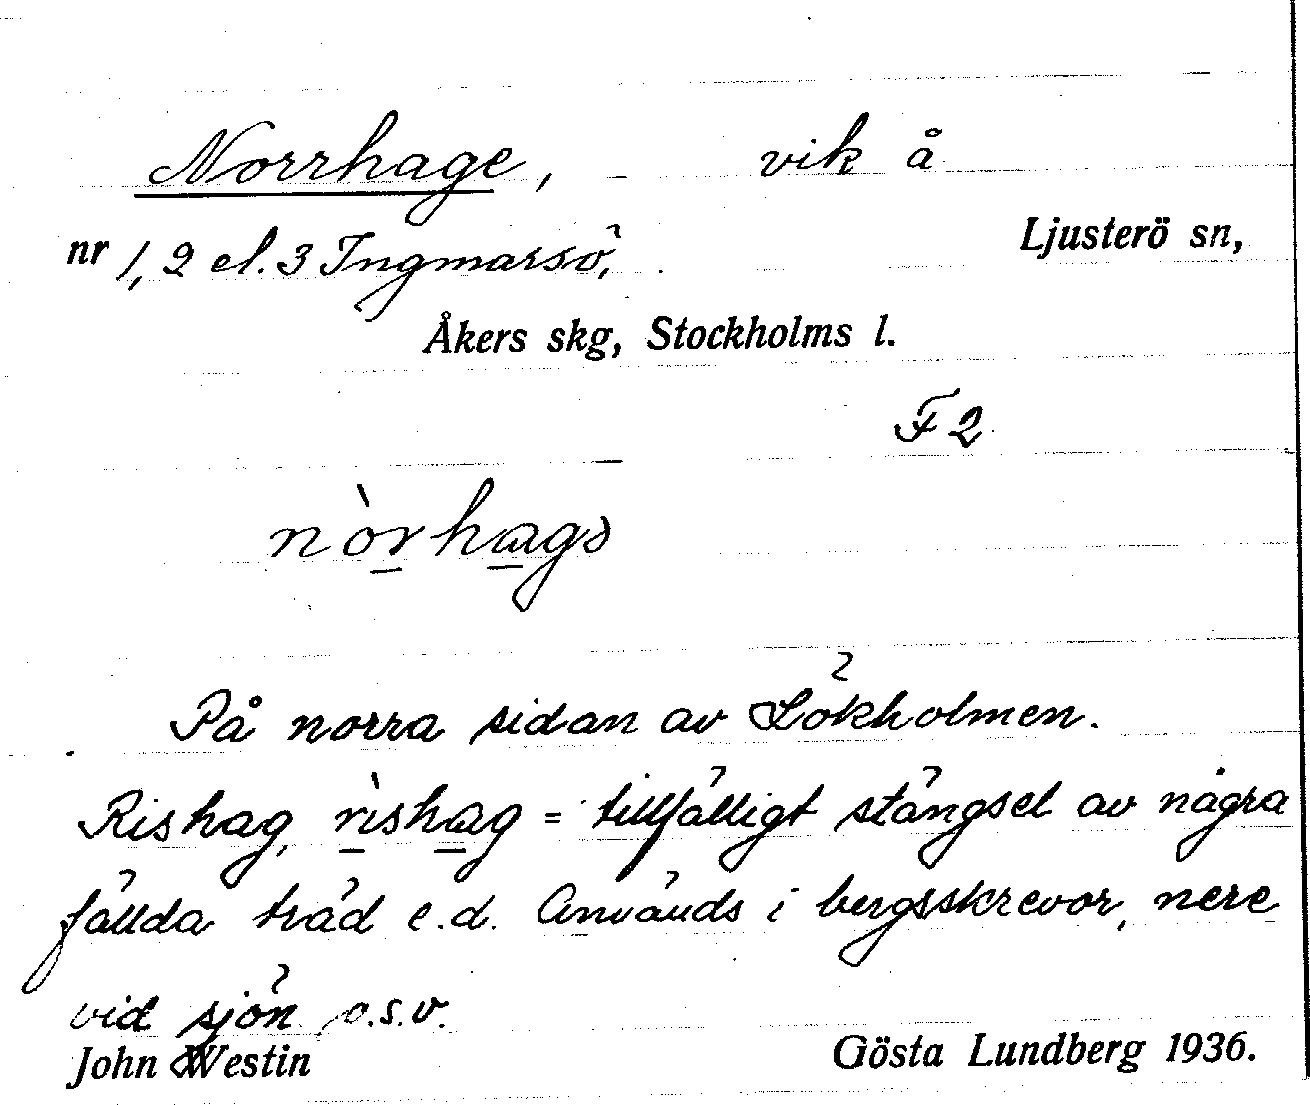 Norrhage, vik å
nr 1, 2 el. 3 Ingmarsö, Ljusterö sn,
Åkers skg, Stockholms l.
F 2
nòrhagə
På norra sidan av Lökholmen.
Rishag, rìshag = tillfälligt stängsel av några
fällda träd e.d. Används i bergsskrevor, nere
vid sjön o.s.v.
John Westin Gösta Lundberg 1936.